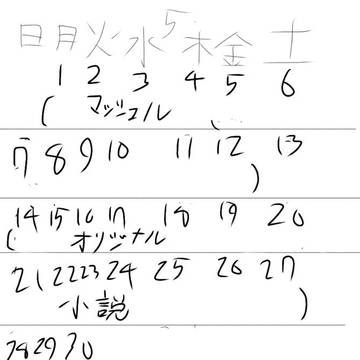 日月火水5木金土
1 2 3 4 5 6
( マジュエル
7 8 9 10 11 12 13
)
14 15 16 17 18 19 20
( オリジナル
21 22 23 24 25 26 27
小説 )
28 29 30